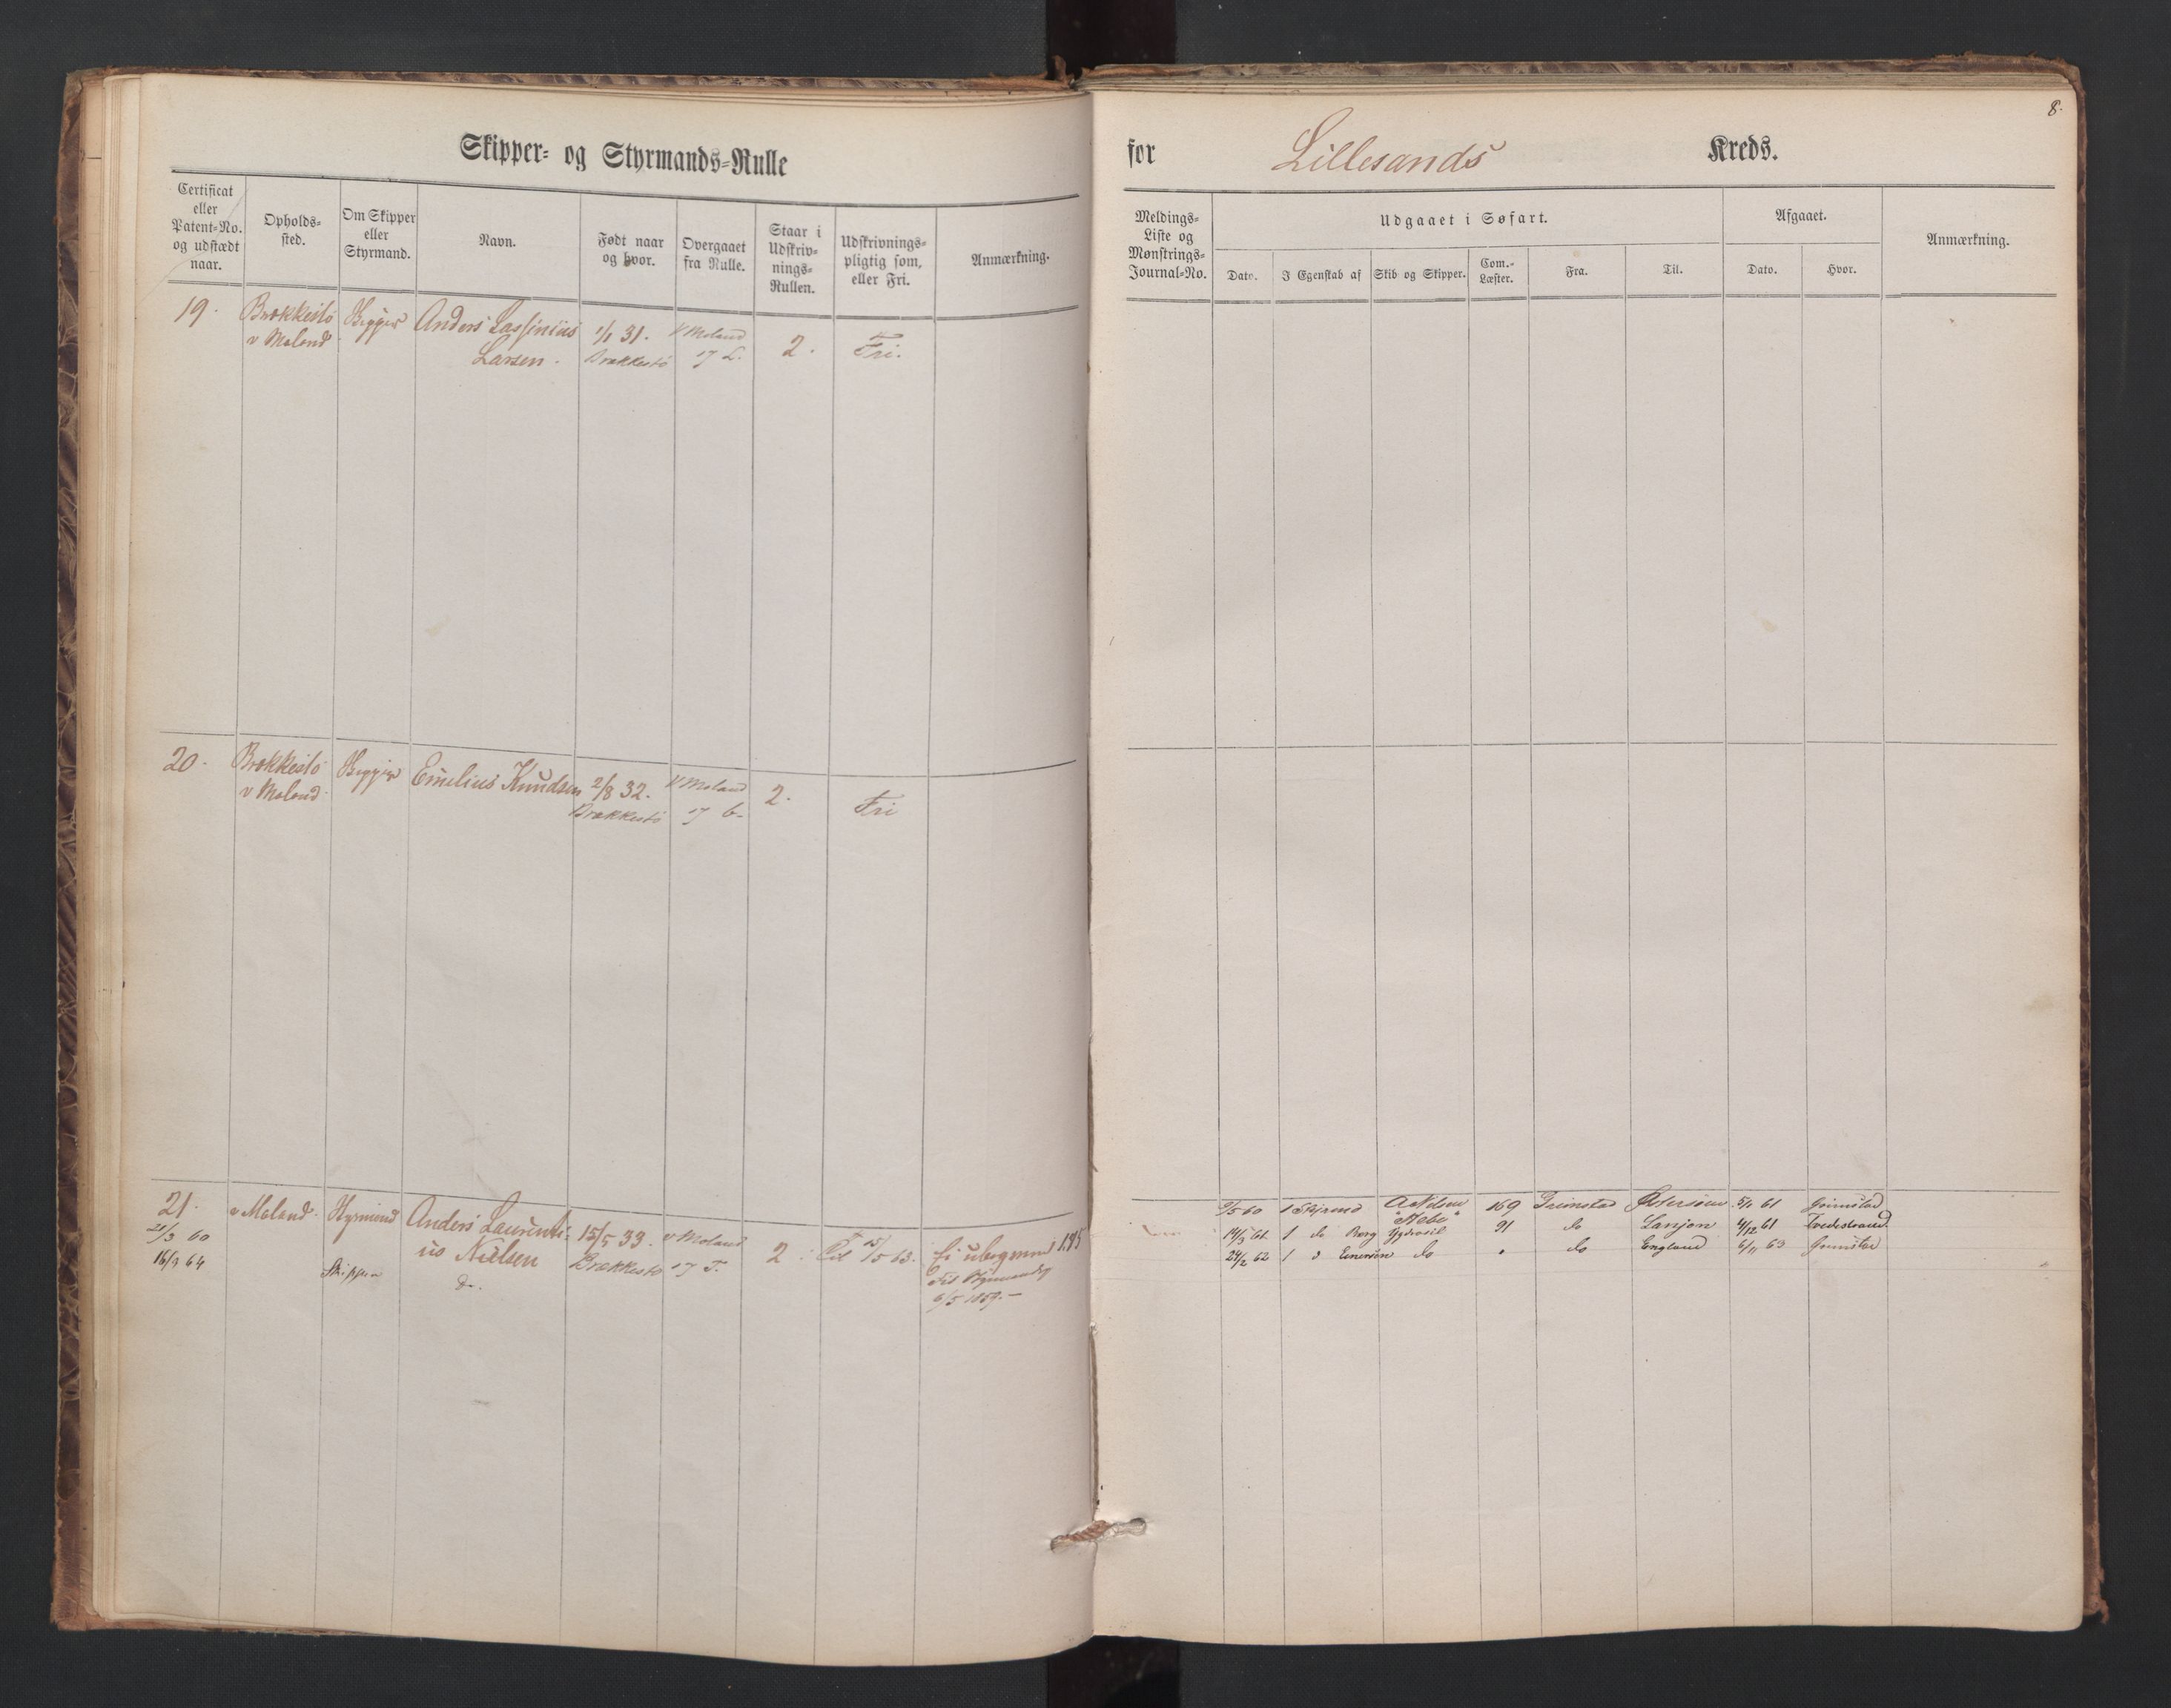 8.
Skipper- og Styrmands-Rulle
for Lillesands Kreds.
Certificat eller Patent-No. og udstædt naar.
Opholds-sted.
Om Skipper eller Styrmand.
Navn.
Født naar og hvor.
Overgaaet fra Rulle.
Staar i Udskriv-nings-Rullen.
Udskrivnings-pligtig som, eller Fri.
Anmærkning.
Meldings-Liste og Mønstrings-Journal-No.
Udgaaet i Søfart.
Dato.
I Egenskab af
Skib og Skipper.
Com.-Læster.
Fra.
Til.
Afgaaet.
Dato.
Hvor.
Anmærkning.
19. Brækkestö Anders Lassinius 1/1 31. V Moland 2. Fri.
v Moland Larsen. Brækkestö 17 L.
20. Brækkestö Emilius Knudsen 2/8 32. V Moland 2. Fri
v Moland Brækkestö 17 6.
21. v Moland. Styrmand Anders Laurenti- 15/5 33. v Moland 2 15/5 63. Ei ubegrænd 1.185
21/3 60 us Nielsen Brækkestö 17 T.
16/3 64 Skipper do. 6/5 1859.—
5 60 1 Styrmd A Nielsen 169 Grimstad Østersöen 5/1 61 Grimstad
"Hebe"
14/3 61 1 do Berg 91 do 4/12 61 Tvedestrand
24/2 62 1 do " do England 6/11 63 Grimstad